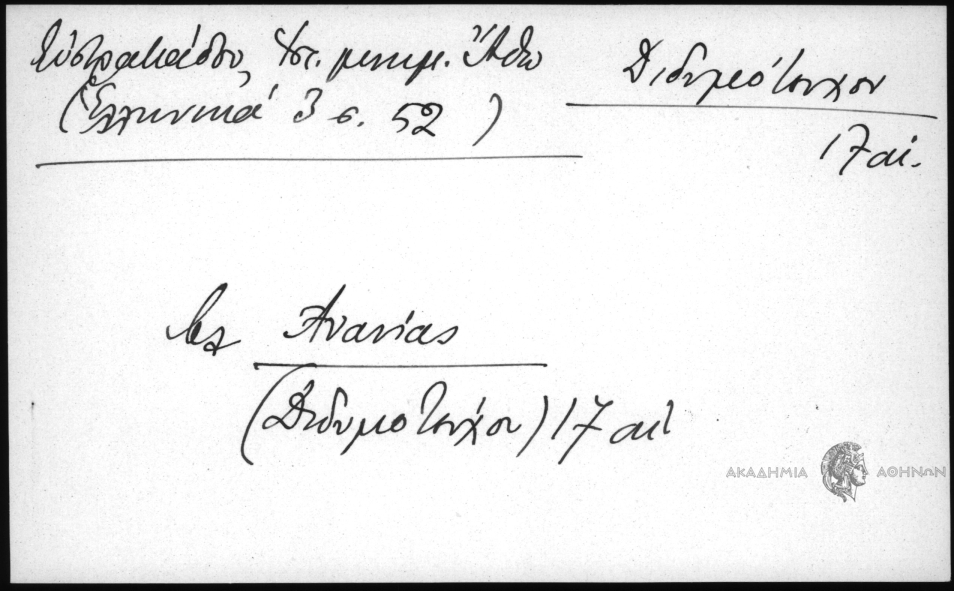 Εὐστρατιάδου, Ἱστ. μνημ. Ἄθω
(Ἑλληνικά 3 σ. 52)
Διδυμότειχον
17 αἰ.
βλ Ἀνανίας
(Διδυμοτείχου) 17 αἰ
ΑΚΑΔΗΜΙΑ ΑΘΗΝΩΝ